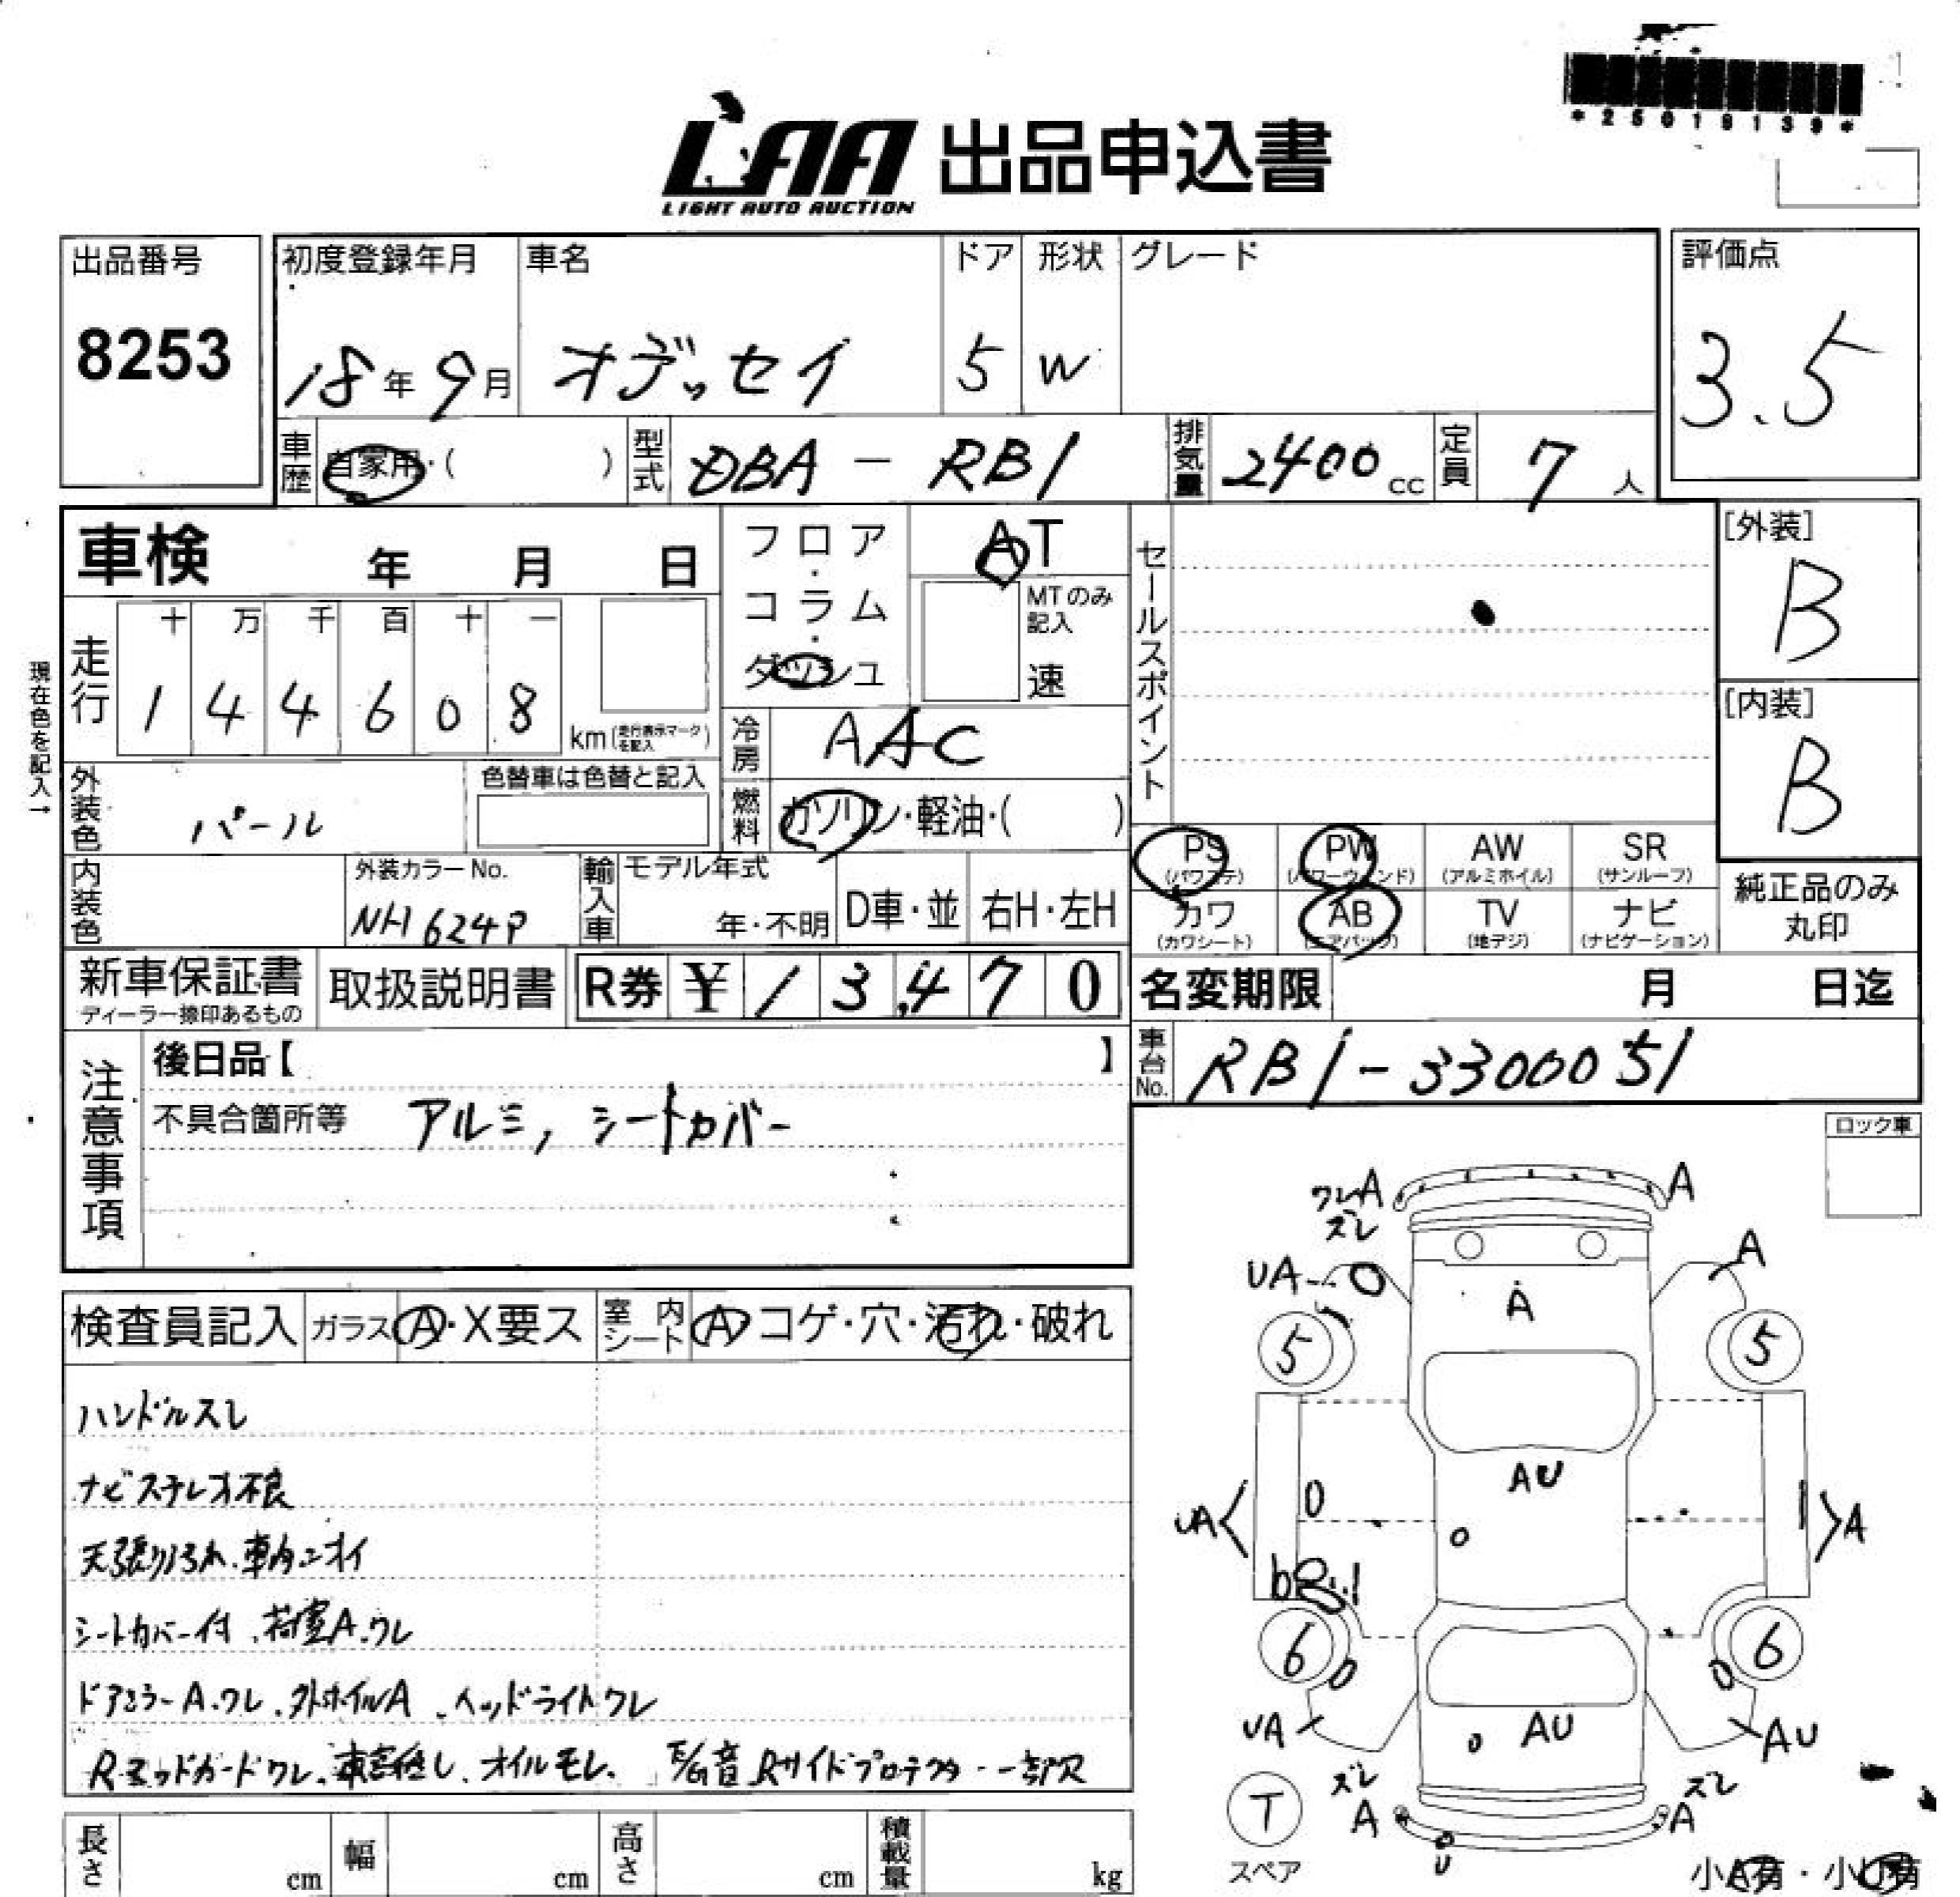 *25019139*
LAA 出品申込書
LIGHT AUTO AUCTION
出品番号
8253
初度登録年月
18年9月
車名
オデッセイ
ドア
5
形状
W
グレード
評価点
3.5
車歴
自家用・( )
型式
DBA-RB1
排気量
2400cc
定員
7人
車検 年 月 日
フロア・コラム・ダッシュ
AT
MTのみ記入
速
セールスポイント
[外装]
B
[内装]
B
現在色を記入→
走行
十 万 千 百 十 一
1 4 4 6 0 8
km(走行表示マークを記入)
冷房
AAC
外装色
パール
色替車は色替と記入
燃料
ガソリン・軽油・( )
PS
(パワステ)
PW
(パワーウィンド)
AW
(アルミホイル)
SR
(サンルーフ)
内装色
外装カラーNo.
NH624P
輸入車
モデル年式
年・不明
D車・並
右H・左H
カワ
(カワシート)
AB
(エアバッグ)
TV
(地デジ)
ナビ
(ナビゲーション)
純正品のみ
丸印
新車保証書
ディーラー捺印あるもの
取扱説明書
R券 ¥13,470
名変期限 月 日迄
車台No.
RB1-3300051
注意事項
後日品【 】
不具合箇所等 アルミ, シートカバー
ロック車
検査員記入
ガラス A・X要ス
室内シート A コゲ・穴・汚れ・破れ
ハンドルスレ
ナビステレオ不良
天張り汚れ、車内ニオイ
シートカバー付、荷室A、ワレ
ドアミラーA、ワレ、外ホイルA、ヘッドライトワレ
Rマッドガードワレ、車高低し、オイルモレ、E/G音、Rサイドプロテクター一部欠
ワレA
ズレ
A
UA
A
A
5
5
AU
UA
A
6
6
UA
AU
AU
ズレ
ズレ
A
A
U
T
スペア
小A有・小U有
長さ cm
幅 cm
高さ cm
積載量 kg